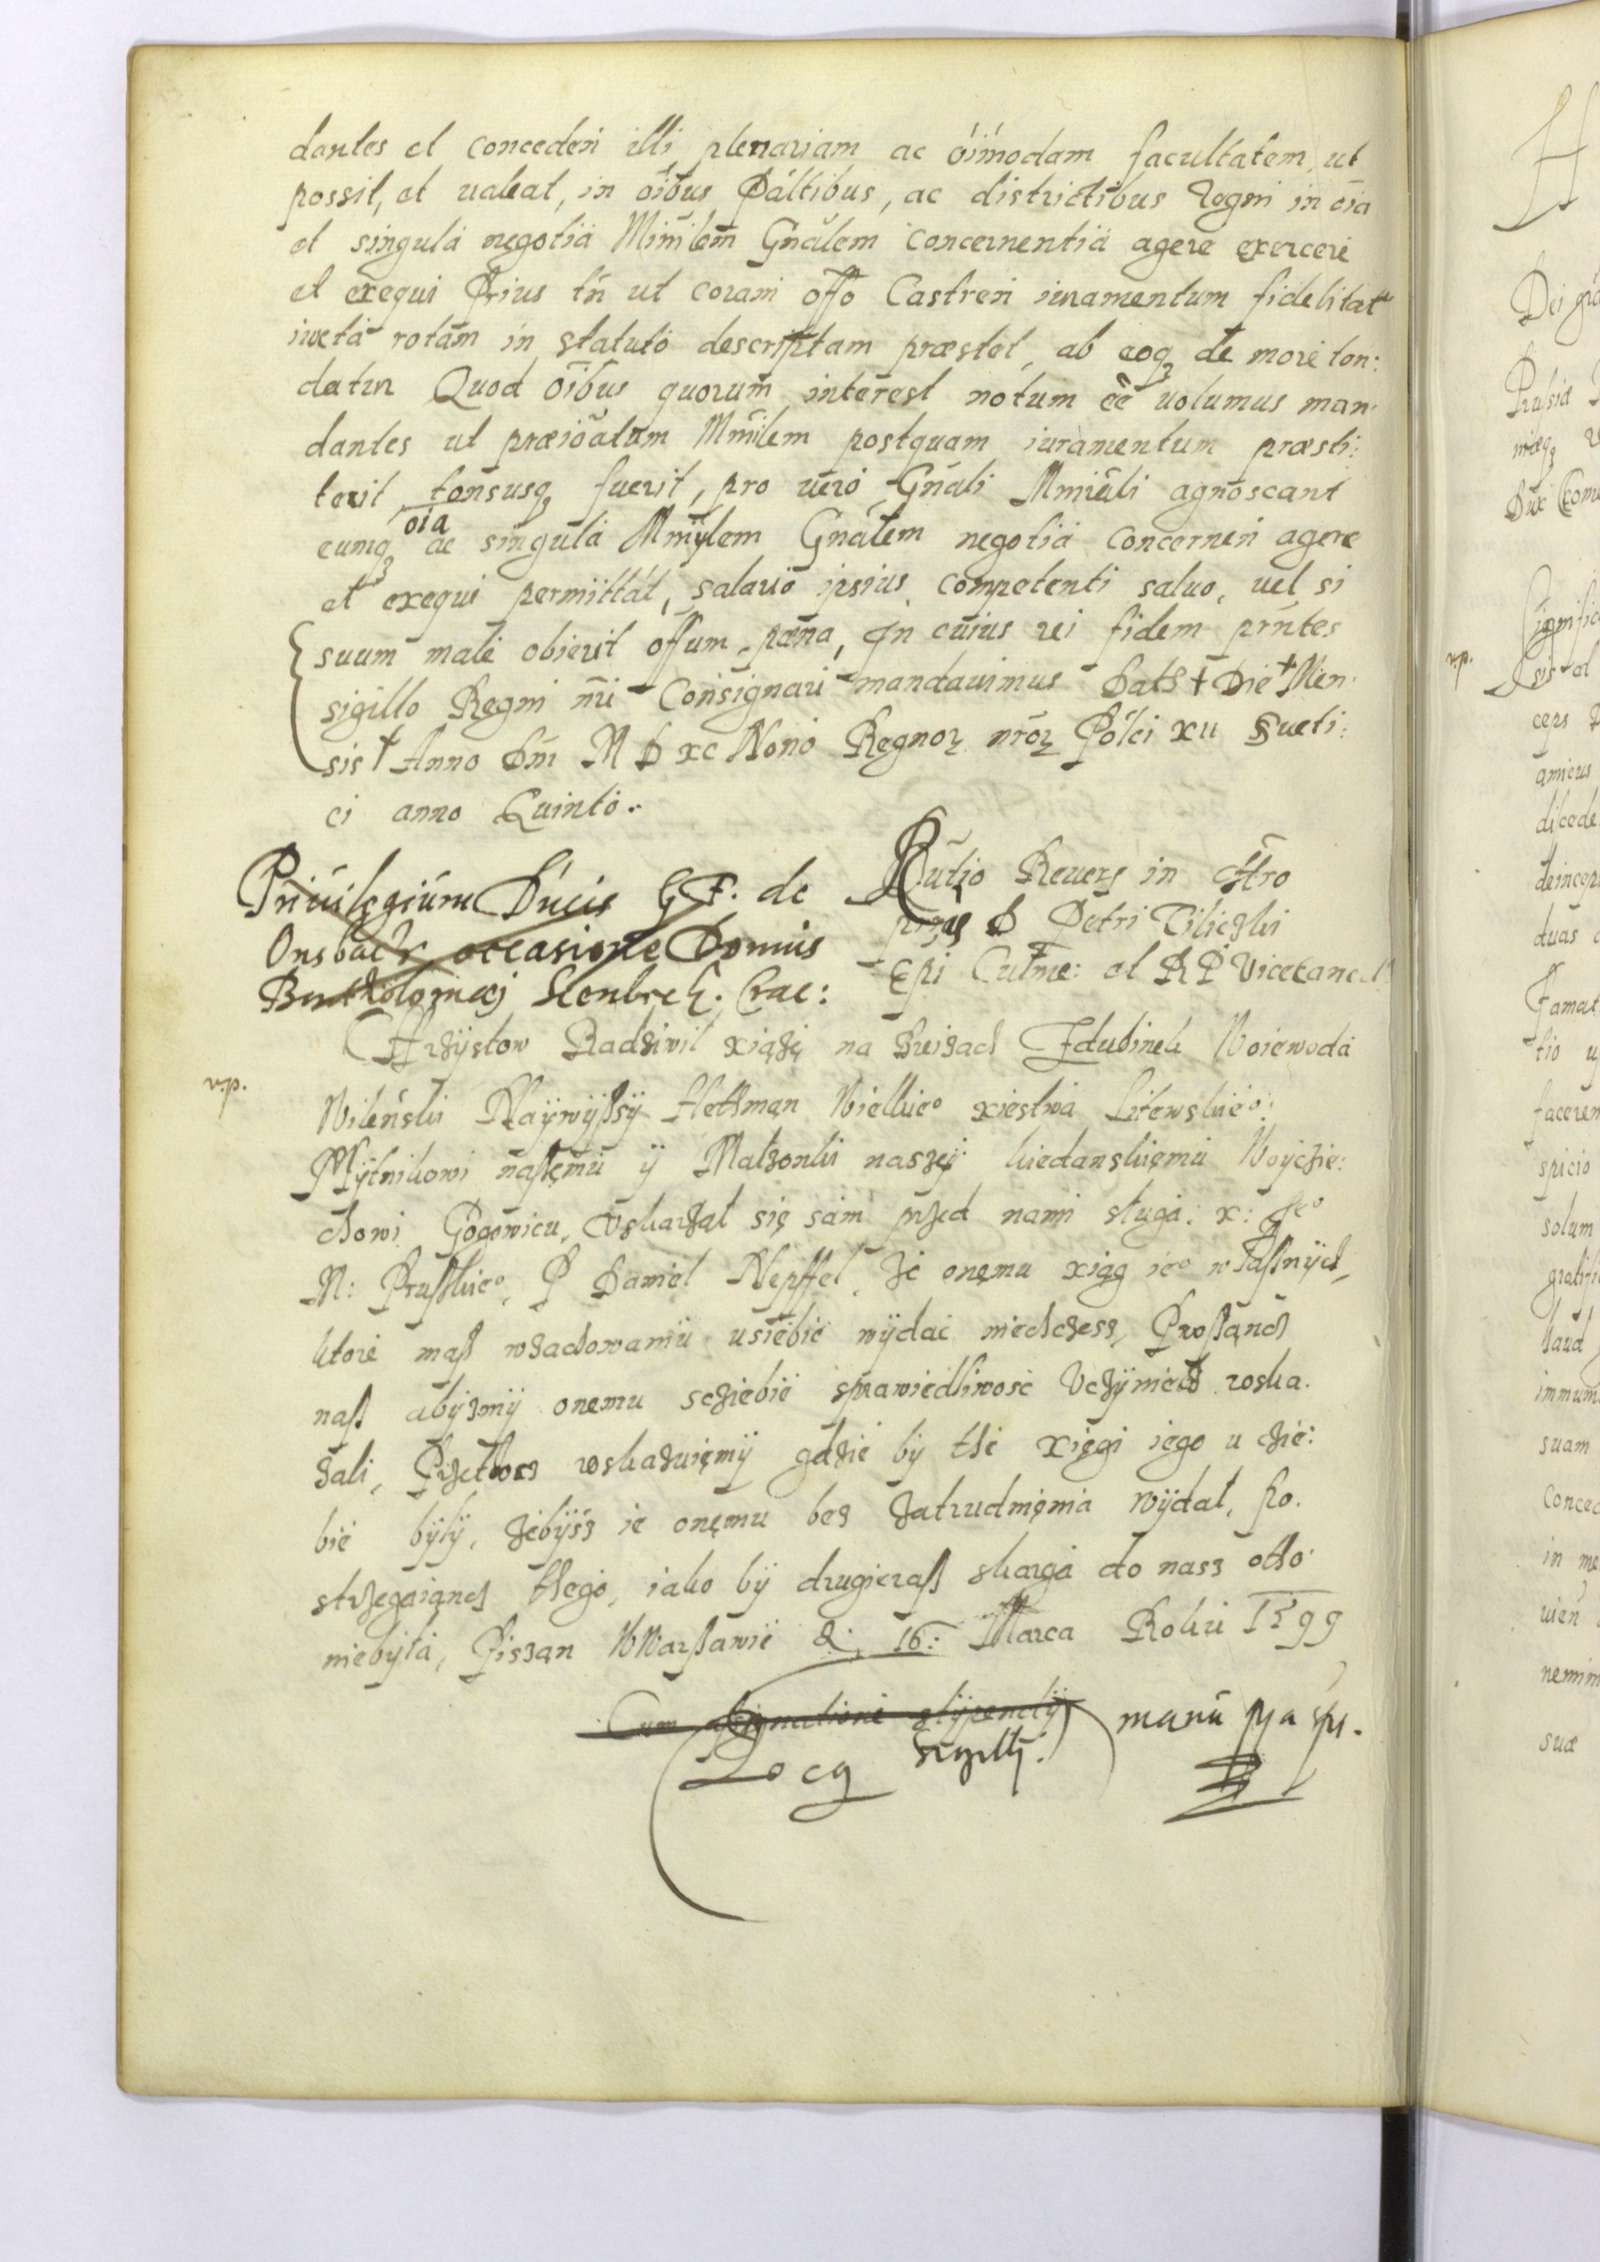 dantes et conceden illi plenariam ac oimodam facultatem ut
possit, et ualeat, in oibus Paltibus, ac districtibus Regni in oia
et singula negotia Minilem Gnalem concernentia agere exercere
et exequi Prius tn ut coram offo Castren iuramentum fidelitat
iuxta rotam in statuto descriptam præstet, ab eoq de more ton:
datur Quod oibus quorum interest notum ee uolumus man-
dantes ut præioatum Mnilem postquam iuramentum præsti:
terit tonsusq fuerit, pro uero Gnali Mnirali agnoscant
oia
eumq ac singula Mnylem Gnalem negotia concernen agere
et exequi permittat, salario ipsius competenti saluo, uel si
suum male obierit offum, pœna, In cuius rei fidem prntes
sigillo Regni nri Consignari mandauimus Dats † Die † Men-
sis † Anno Dni M D xc Nono Regnor nror Polci xii Sueti:
ci anno Quinto.
Priuilegium Ducis G F. de
Onsbach occasione Domus
Bartholomæj Crac:
Reuers in
D Petri Tiliczki
Epi Culme: et R P Vicecancel
Radziwil xiążę na Bierzach Ydubinek Woiewoda
Wileński Naywyßsy Hethman Wielkie° xiestwa Litewskie°:
Mytnikowi naßemu y Malzonki naszey kiedanskiemu Woycie:
chowi Gogowicu, Uskarzał się sam przed nami sługa: x: Je°
M: Prußkie°, P Daniel Nepffel, że onemu xiąg ie° właßnych,
ktore maß wzachowaniu usiebie wydać niechcess, Proßąnch
naß abysmy onemu scziebie sprawiedliwosc Uczynicz roska-
zali, Przethoss roskazuiemy gdzie by the xięgi iego u cie:
bie były, żebyss ie onemu bes zatrudnięnia wydał, Po-
strzegaiąnch thego, iako by drugieraß skarga do nass otho
niebyła, Pissan WWarßawie d. 16: Marca Roku 1599
Cum assignatione stypendij
manu ppa sps.
Locq Sigilli:
v.p.
v.p.